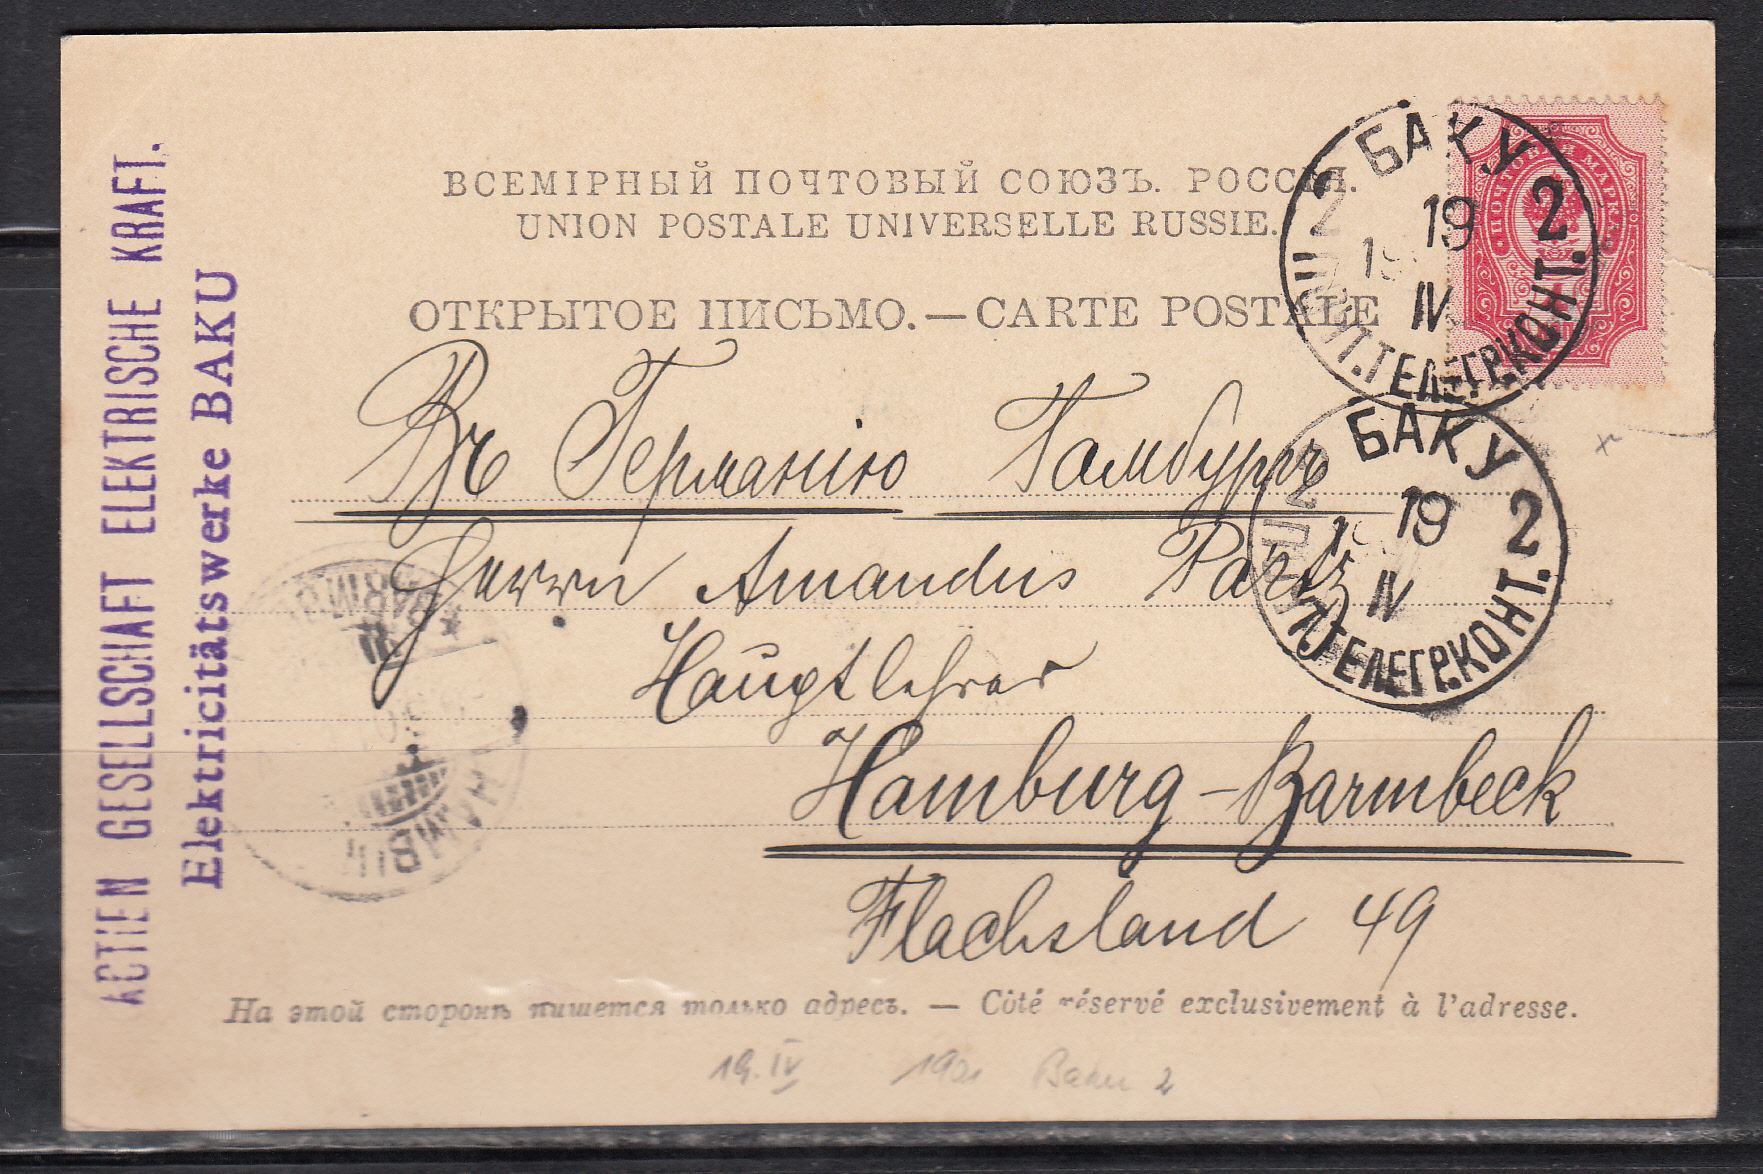 ВСЕМІРНЫЙ ПОЧТОВЫЙ СОЮЗЪ. РОССІЯ.
UNION POSTALE UNIVERSELLE RUSSIE.
ОТКРЫТОЕ ПИСЬМО. — CARTE POSTALE
БАКУ
2 19 2
IV
ПОЧТ. ТЕЛЕГР. КОНТ.
ПОЧТОВАЯ МАРКА
Въ Германію Гамбургъ
БАКУ
2 19 2
IV
ТЕЛЕГР. КОНТ.
Herrn Amandus
Hauptlehrer
Hamburg - Barmbeck
Flachsland 49
ACTIEN GESELLSCHAFT ELEKTRISCHE KRAFT.
Elektricitätswerke BAKU
HAMBU
На этой сторонѣ пишется только адресъ. — Côté réservé exclusivement à l'adresse.
19. IV 1901 Baku 2